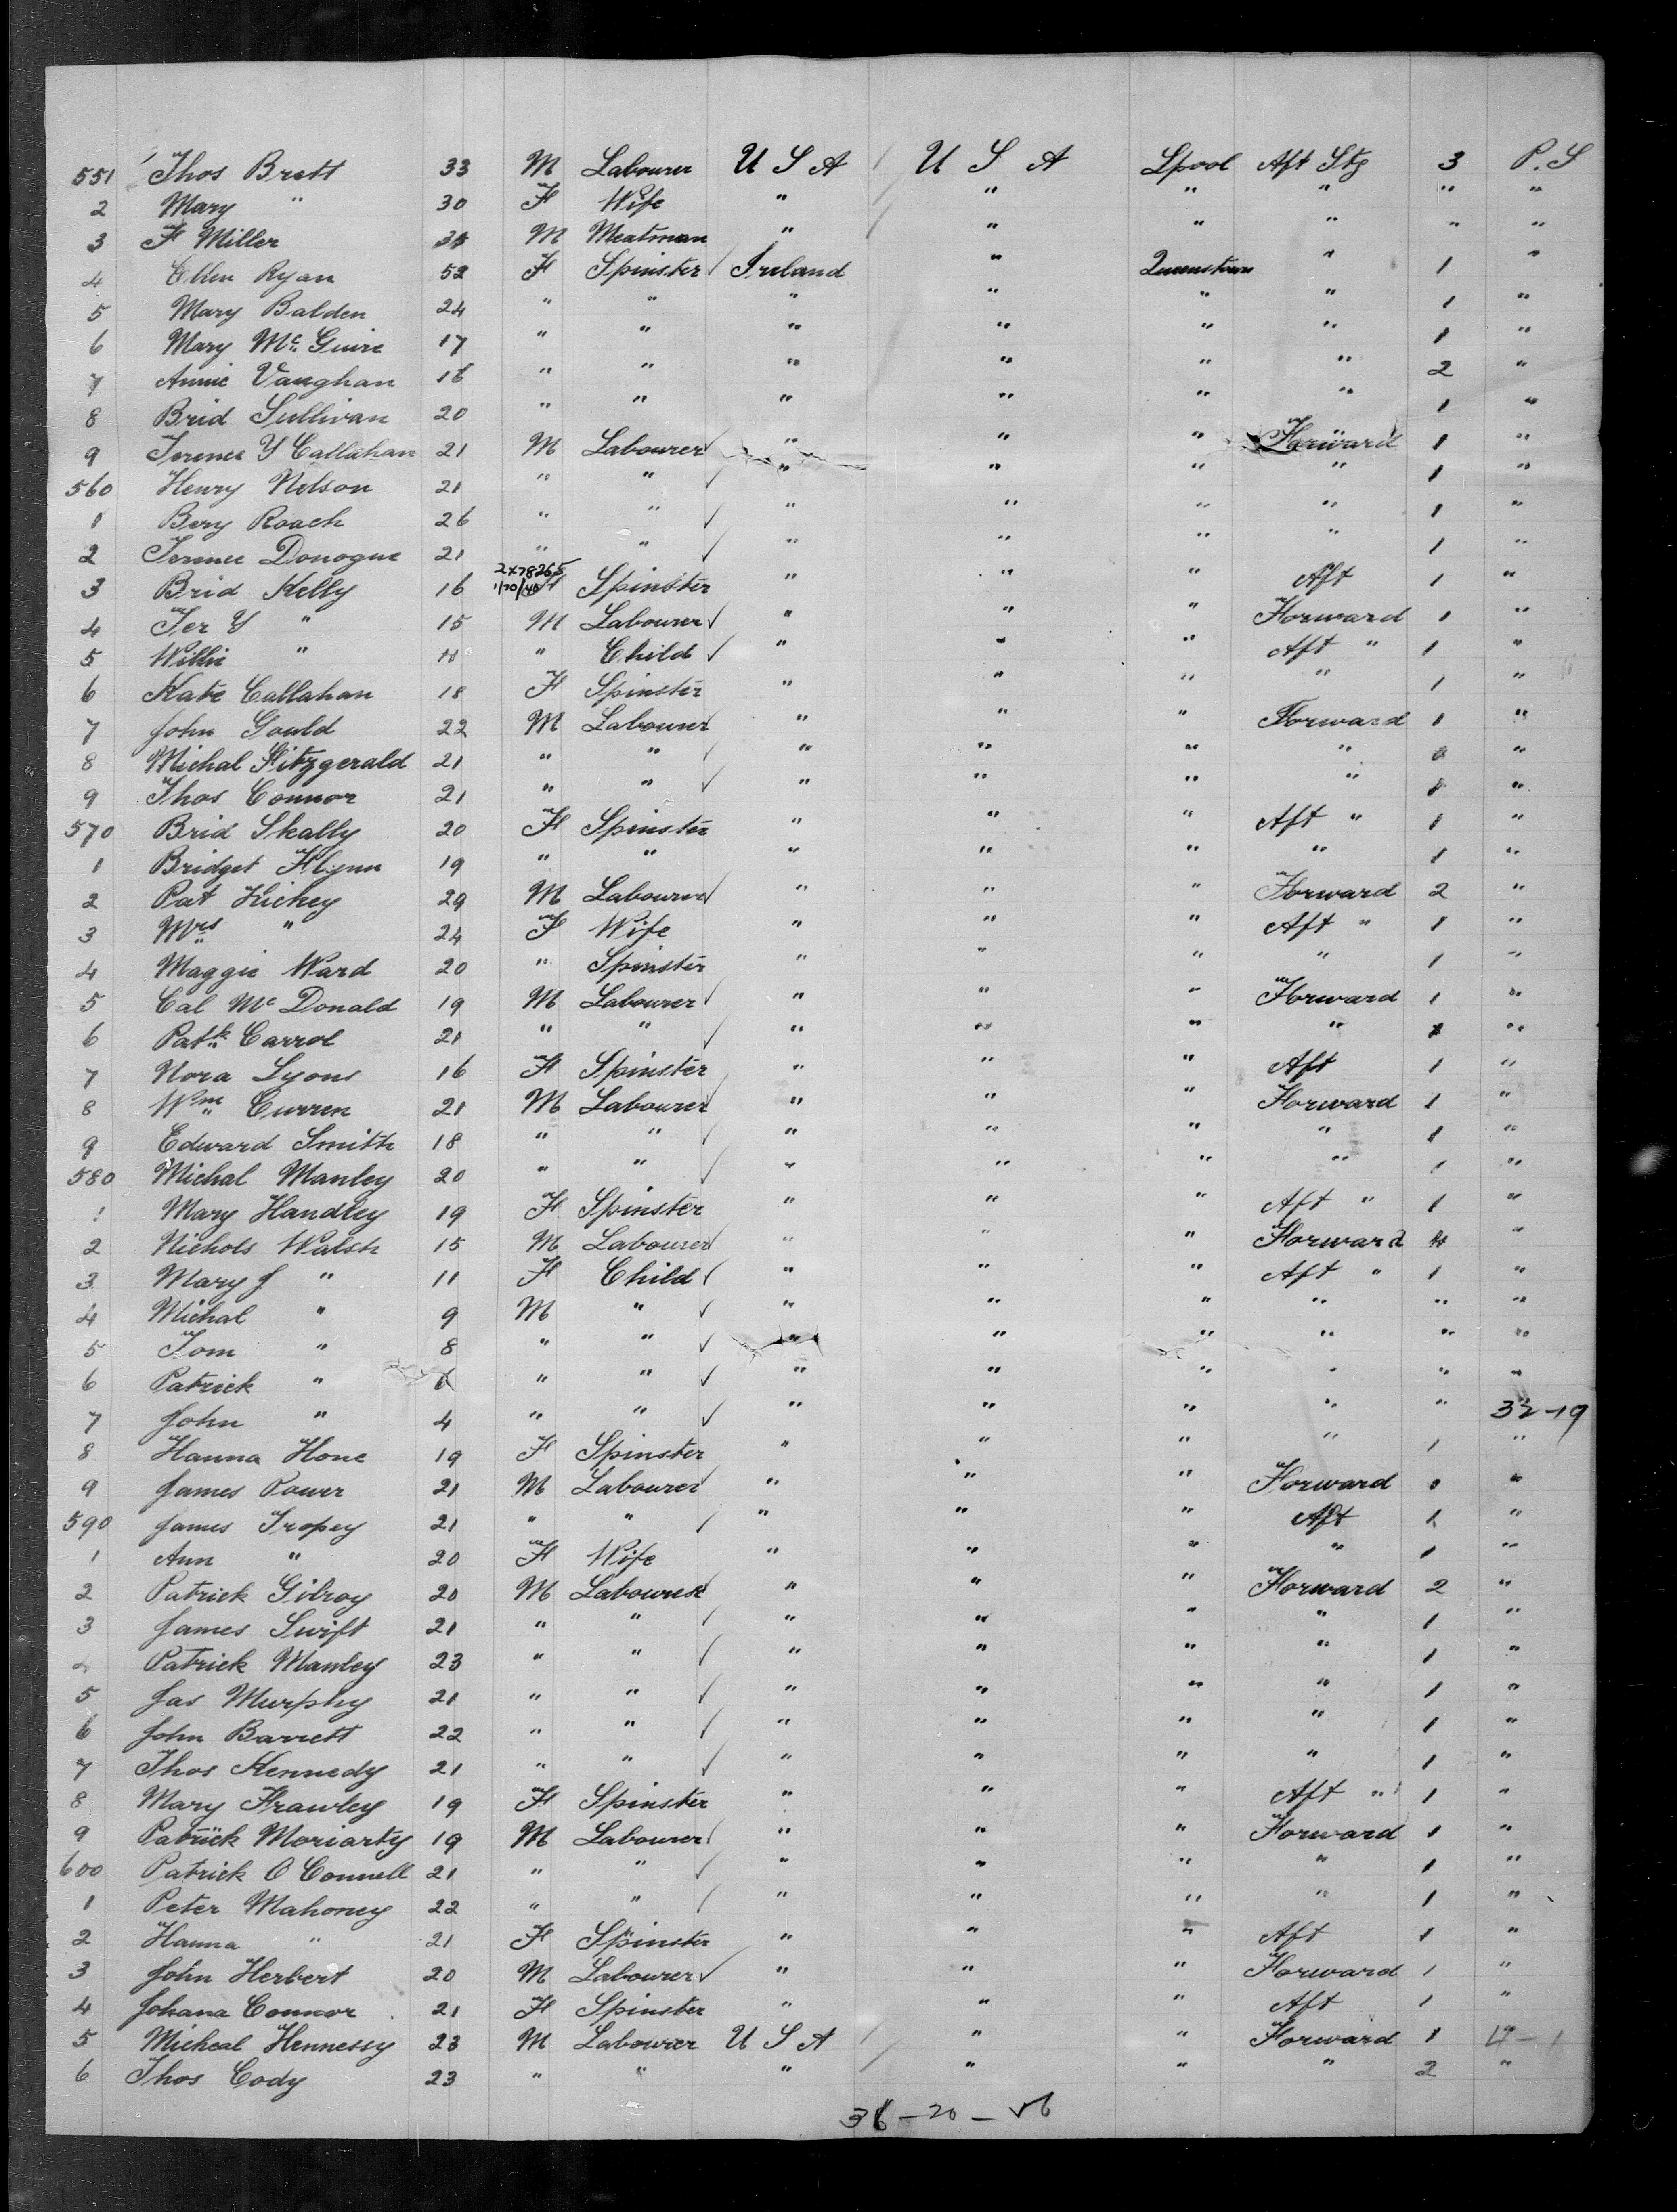 551 Thos Brett 33 M Labourer U S A / U S A Lpool Aft Stg 3 P.S
2 Mary " 30 F Wife " " " " " "
3 F Miller M Meatman " " " " " "
4 Ellen Ryan 52 F Spinster Ireland " Queenstown " 1 "
5 Mary Balden 24 " " " " " " 1 "
6 Mary Mc Guire 17 " " " " " " 1 "
7 Annie Vaughan 18 " " " " " " 2 "
8 Brid Sullivan 20 " " " " " " 1 "
9 Terence Y Callahan 21 M Labourer " " " Forward 1 "
560 Henry Nelson 21 " " " " " " 1 "
1 Bery Roach 26 " " " " " " 1 "
2 Terence Donogue 21 " " " " " " 1 "
2x78265
3 Brid Kelly 16 1/30/40 F Spinster " " " Aft 1 "
4 Jer Y " 15 M Labourer " " " Forward 1 "
5 Willie " 11 " Child " " " Aft " 1 "
6 Kate Callahan 18 F Spinster " " " " 1 "
7 John Gould 22 M Labourer " " " Forward 1 "
8 Michal Fitzgerald 21 " " " " " " "
9 Thos Connor 21 " " " " " " 1 "
570 Brid Skally 20 F Spinster " " " Aft " 1 "
1 Bridget Flynn 19 " " " " " " 1 "
2 Pat Hickey 29 M Labourer " " " Forward 2 "
3 Mrs " 24 F Wife " " " Aft " 1 "
4 Maggie Ward 20 " Spinster " " " " 1 "
5 Cal Mc Donald 19 M Labourer " " " Forward 1 "
6 Patk Carrol 21 " " " " " " 1 "
7 Nora Lyons 16 F Spinster " " " Aft 1 "
8 Wm Curren 21 M Labourer " " " Forward 1 "
9 Edward Smith 18 " " " " " " 1 "
580 Michal Manley 20 " " " " " " 1 "
1 Mary Handley 19 F Spinster " " " Aft " 1 "
2 Nichols Walsh 15 M Labourer " " " Forward "
3 Mary J " 11 F Child " " " Aft " 1 "
4 Michal " 9 M " " " " " " "
5 Tom " 8 " " " " " " " "
6 Patrick " 6 " " " " " " " "
7 John " 4 " " " " " " " 32-19
8 Hanna Hone 19 F Spinster " " " " 1 "
9 James Power 21 M Labourer " " " Forward 1 "
590 James Tropey 21 " " " " " Aft 1 "
1 Ann " 20 F Wife " " " " 1 "
2 Patrick Gilroy 20 M Labourer " " " Forward 2 "
3 James Swift 21 " " " " " " 1 "
4 Patrick Manley 23 " " " " " " 1 "
5 Jas Murphy 21 " " " " " " 1 "
6 John Barrett 22 " " " " " " 1 "
7 Thos Kennedy 21 " " " " " " 1 "
8 Mary Frawley 19 F Spinster " " " Aft " 1 "
9 Patrick Moriarty 19 M Labourer " " " Forward 1 "
600 Patrick O Connell 21 " " " " " " 1 "
1 Peter Mahoney 22 " " " " " " 1 "
2 Hanna " 21 F Spinster " " " Aft 1 "
3 John Herbert 20 M Labourer " " " Forward 1 "
4 Johana Connor 21 F Spinster " " " Aft 1 "
5 Micheal Hennessy 23 M Labourer U S A / " " Forward 1
6 Thos Cody 23 " " " / " " " 2 "
36 - 20 - 56